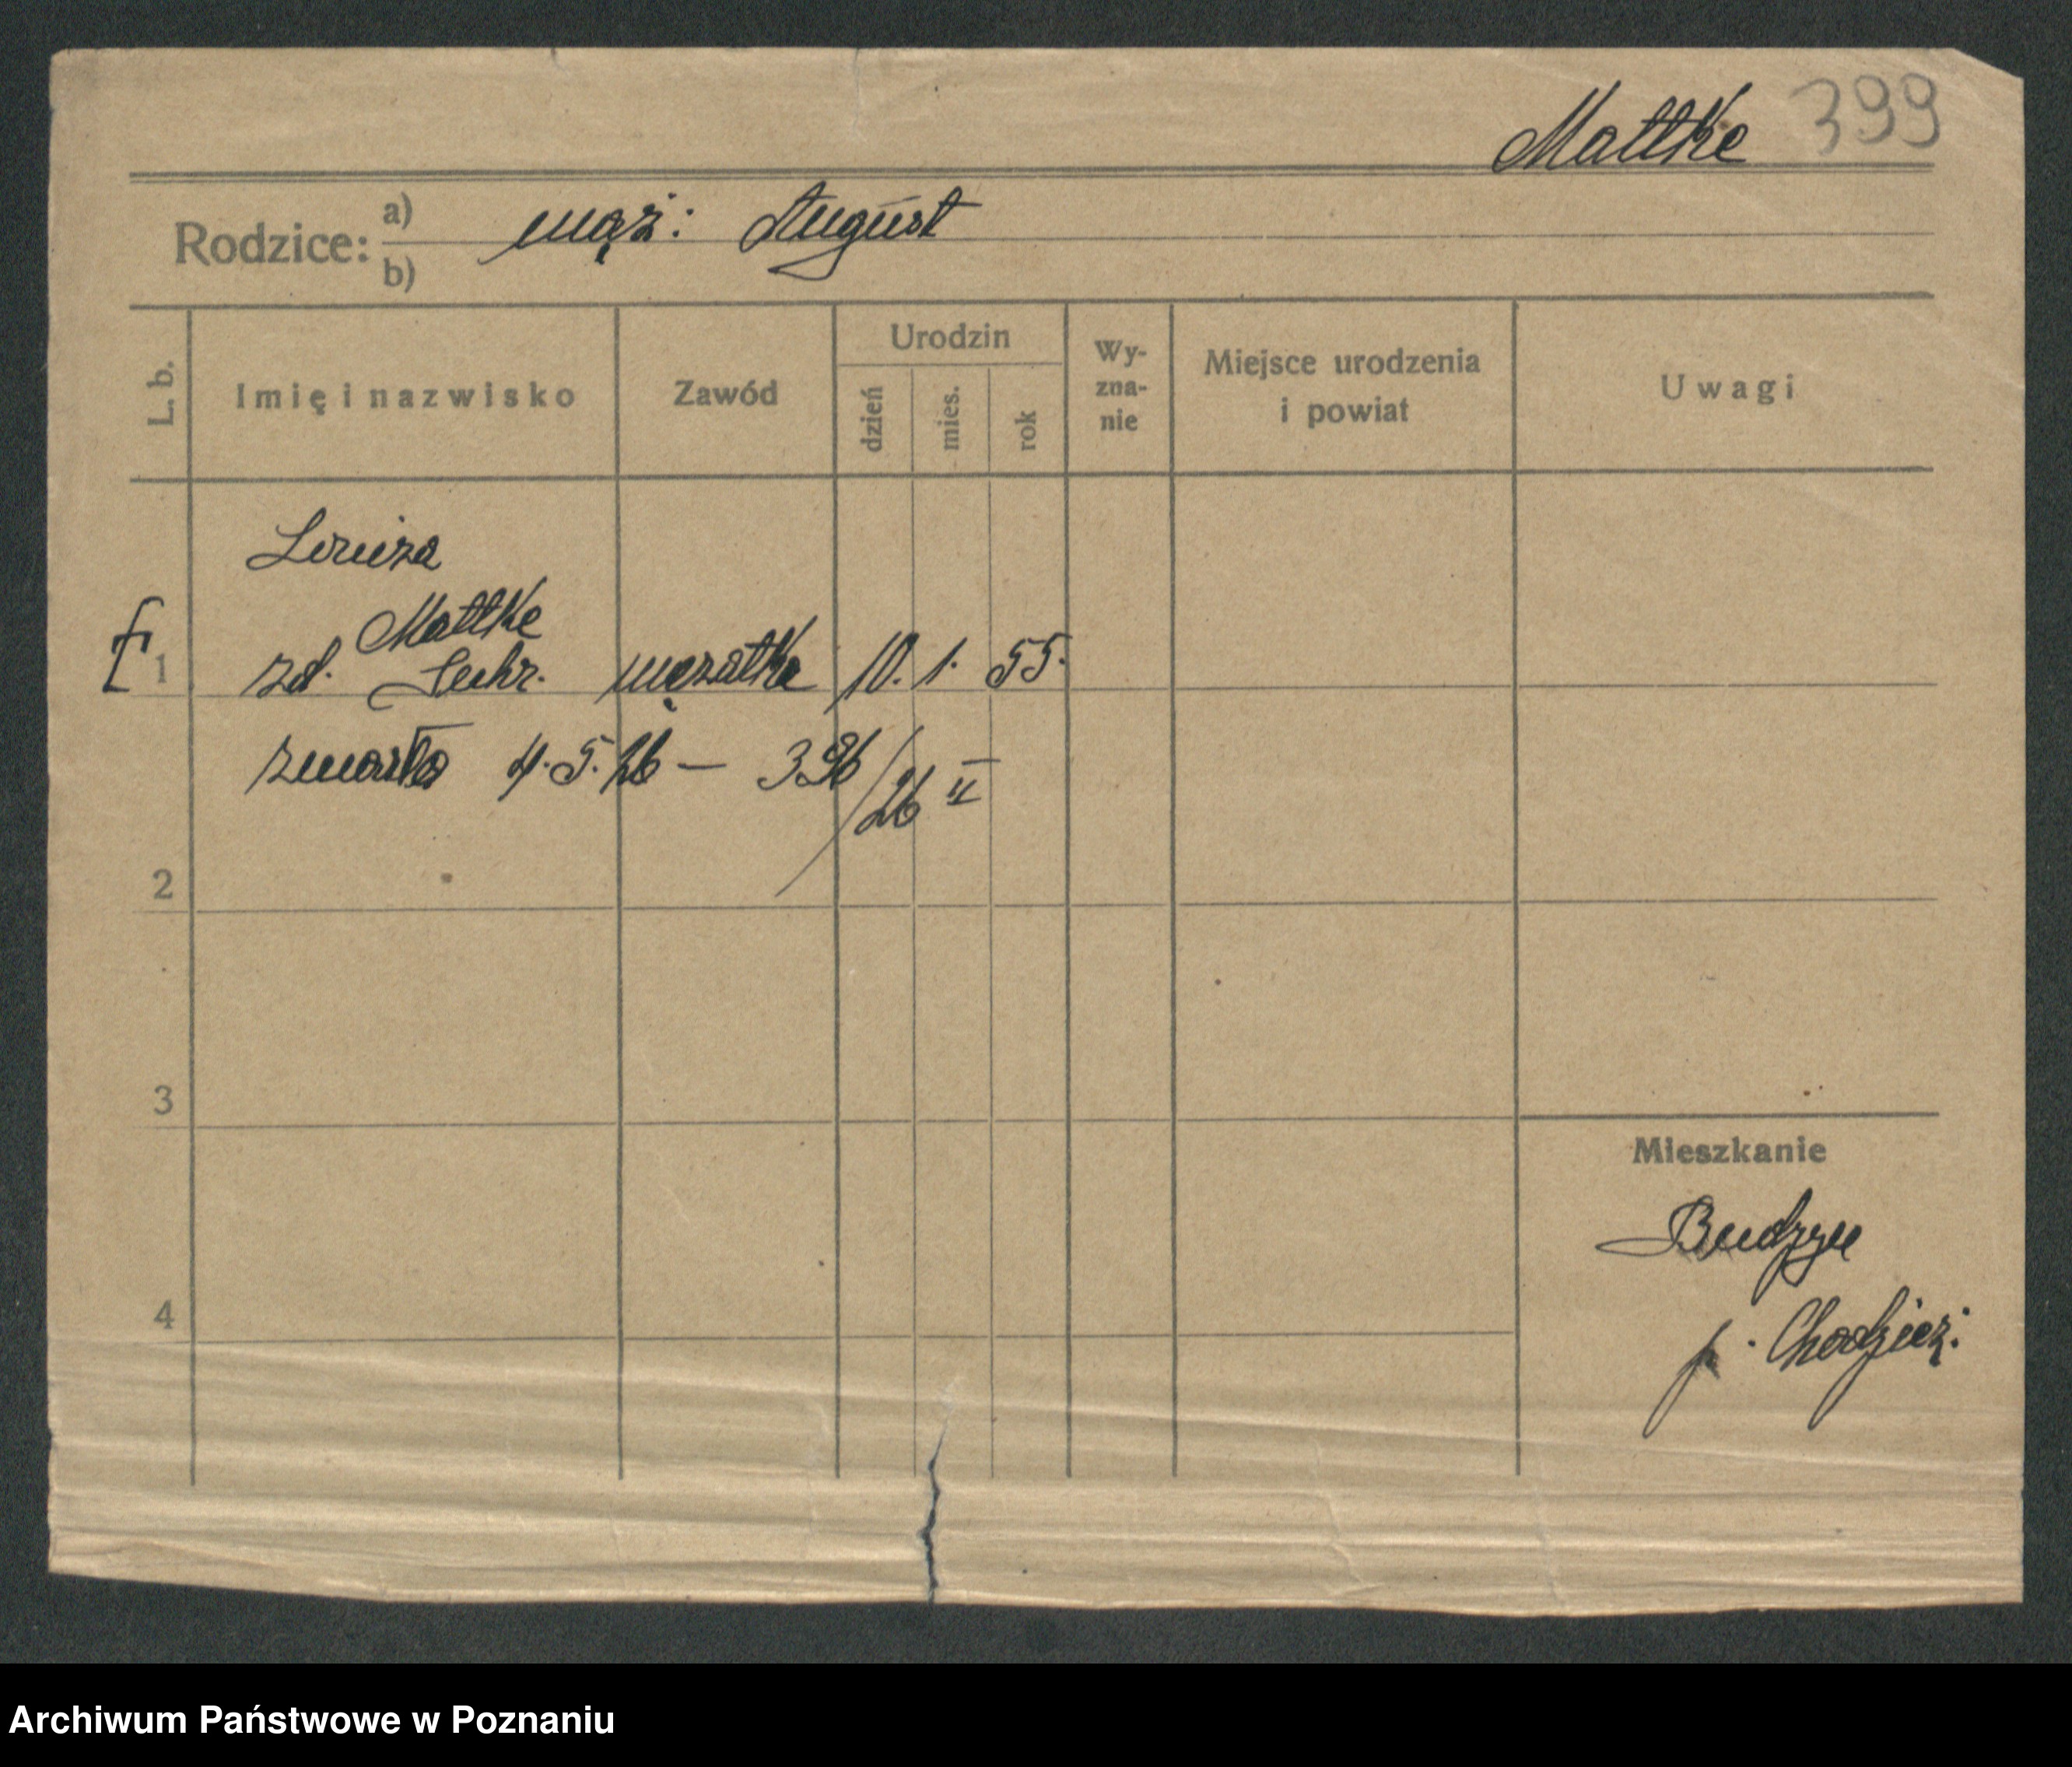 Mattke 399
Rodzice: a) mąż: August
b)
L. b.
Imię i nazwisko
Zawód
Urodzin
dzień
mies.
rok
Wy-
zna-
nie
Miejsce urodzenia
i powiat
Uwagi
Louiza
Mattke
1 zd. Suhr. mężatka 10. 1. 55.
zmarła 4.5.26 — 396/26 II
2
3
4
Mieszkanie
Budzyn
p. Chodzież.
Archiwum Państwowe w Poznaniu